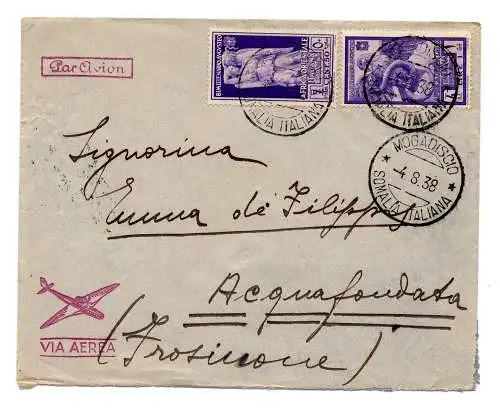 Par Avion
BIMILLENARIO AUGUSTEO
AFRICA ORIENTALE
ITALIANA
MOGADISCIO
-4.8.38
SOMALIA ITALIANA
Signorina
Emma de Filippis
Acquafondata
(Frosinone)
VIA AEREA